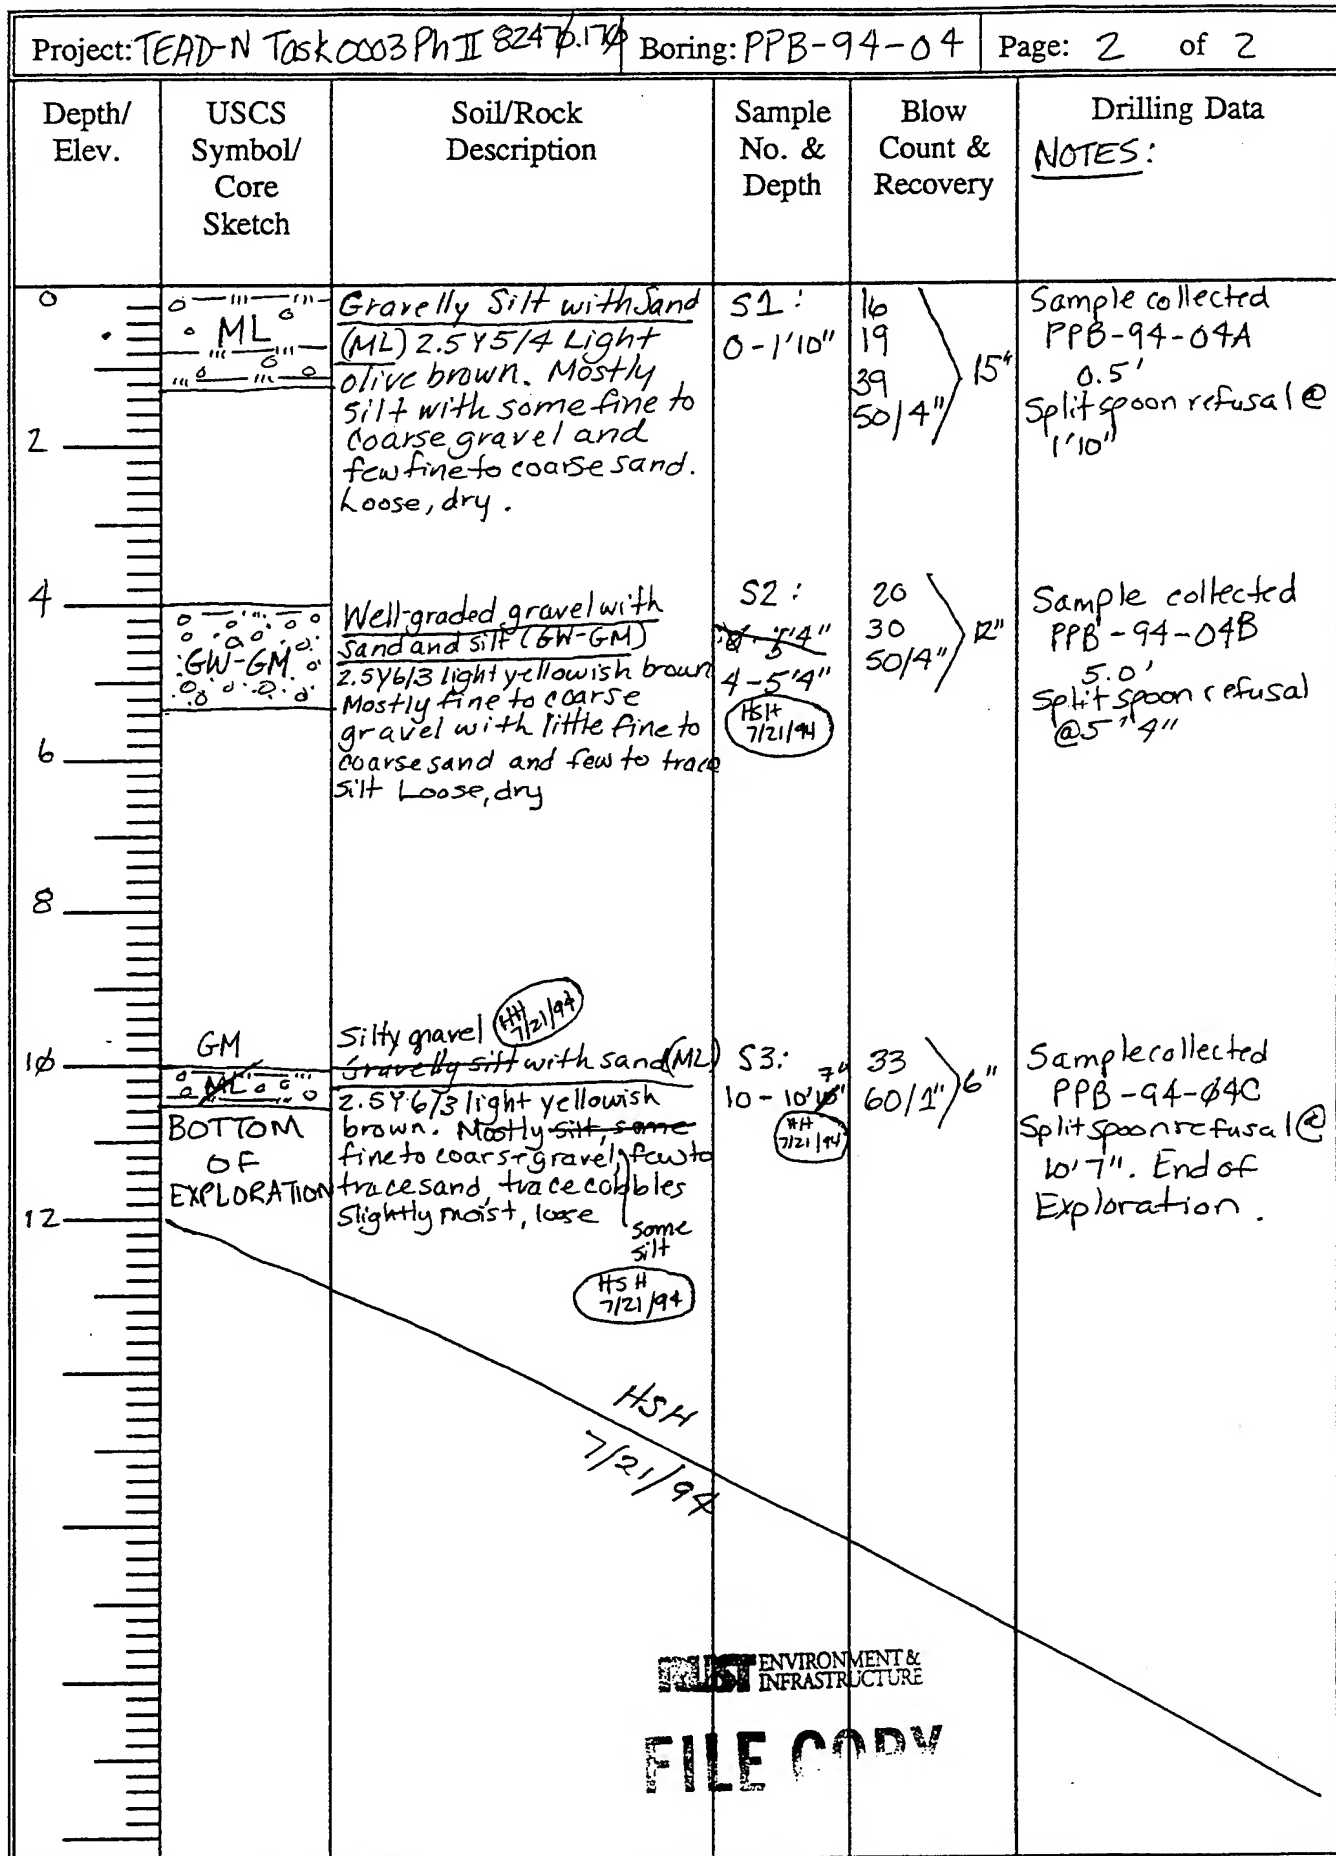 Project: TEAD-N Task 0003 Ph II 82470.170 Boring: PPB-94-04 Page: 2 of 2
Depth/
Elev.
USCS
Symbol/
Core
Sketch
Soil/Rock
Description
Sample
No. &
Depth
Blow
Count &
Recovery
Drilling Data
NOTES:
0
ML
Gravelly Silt with Sand
(ML) 2.5Y5/4 Light
olive brown. Mostly
silt with some fine to
coarse gravel and
few fine to coarse sand.
Loose, dry.
S1:
0-1'10"
16
19
39
50/4"
15"
Sample collected
PPB-94-04A
0.5'
Split spoon refusal @
1'10"
2
4
GW-GM
Well-graded gravel with
sand and silt (GW-GM)
2.5Y6/3 light yellowish brown
Mostly fine to coarse
gravel with little fine to
coarse sand and few to trace
silt Loose, dry
S2:
4-5'4"
HSH
7/21/94
20
30
50/4"
12"
Sample collected
PPB-94-04B
5.0'
Split spoon refusal
@5'4"
6
8
10
GM
ML
BOTTOM
OF
EXPLORATION
Silty gravel HH
7/21/94
Gravelly silt with sand (ML)
2.5Y-6/3 light yellowish
brown. Mostly silt, some
fine to coarse gravel, few to
trace sand, trace cobbles
Slightly moist, loose
some
silt
HSH
7/21/94
S3:
7"
10-10'10"
HH
7/21/94
33
60/1"
6"
Sample collected
PPB-94-04C
Split spoon refusal @
10'7". End of
Exploration.
12
HSH
7/21/94
RUST ENVIRONMENT &
INFRASTRUCTURE
FILE COPY